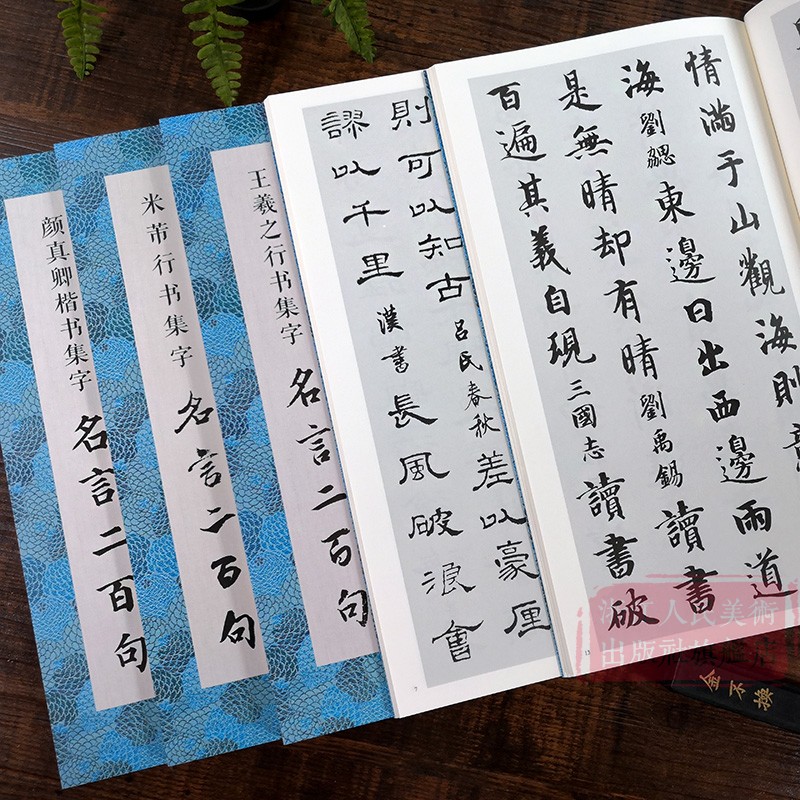 颜真卿楷书集字
名言二百句
米芾行书集字
名言二百句
王羲之行书集字
名言二百句
則可以知古 呂氏春秋 差以豪厘
謬以千里 漢書 長風破浪會
7
情滿于山觀海則意
海 劉勰 東邊日出西邊雨道
是無晴却有晴 劉禹錫 讀書
百遍其義自現 三國志 讀書破
13
浙江人民美術
出版社旗舰店
金不換